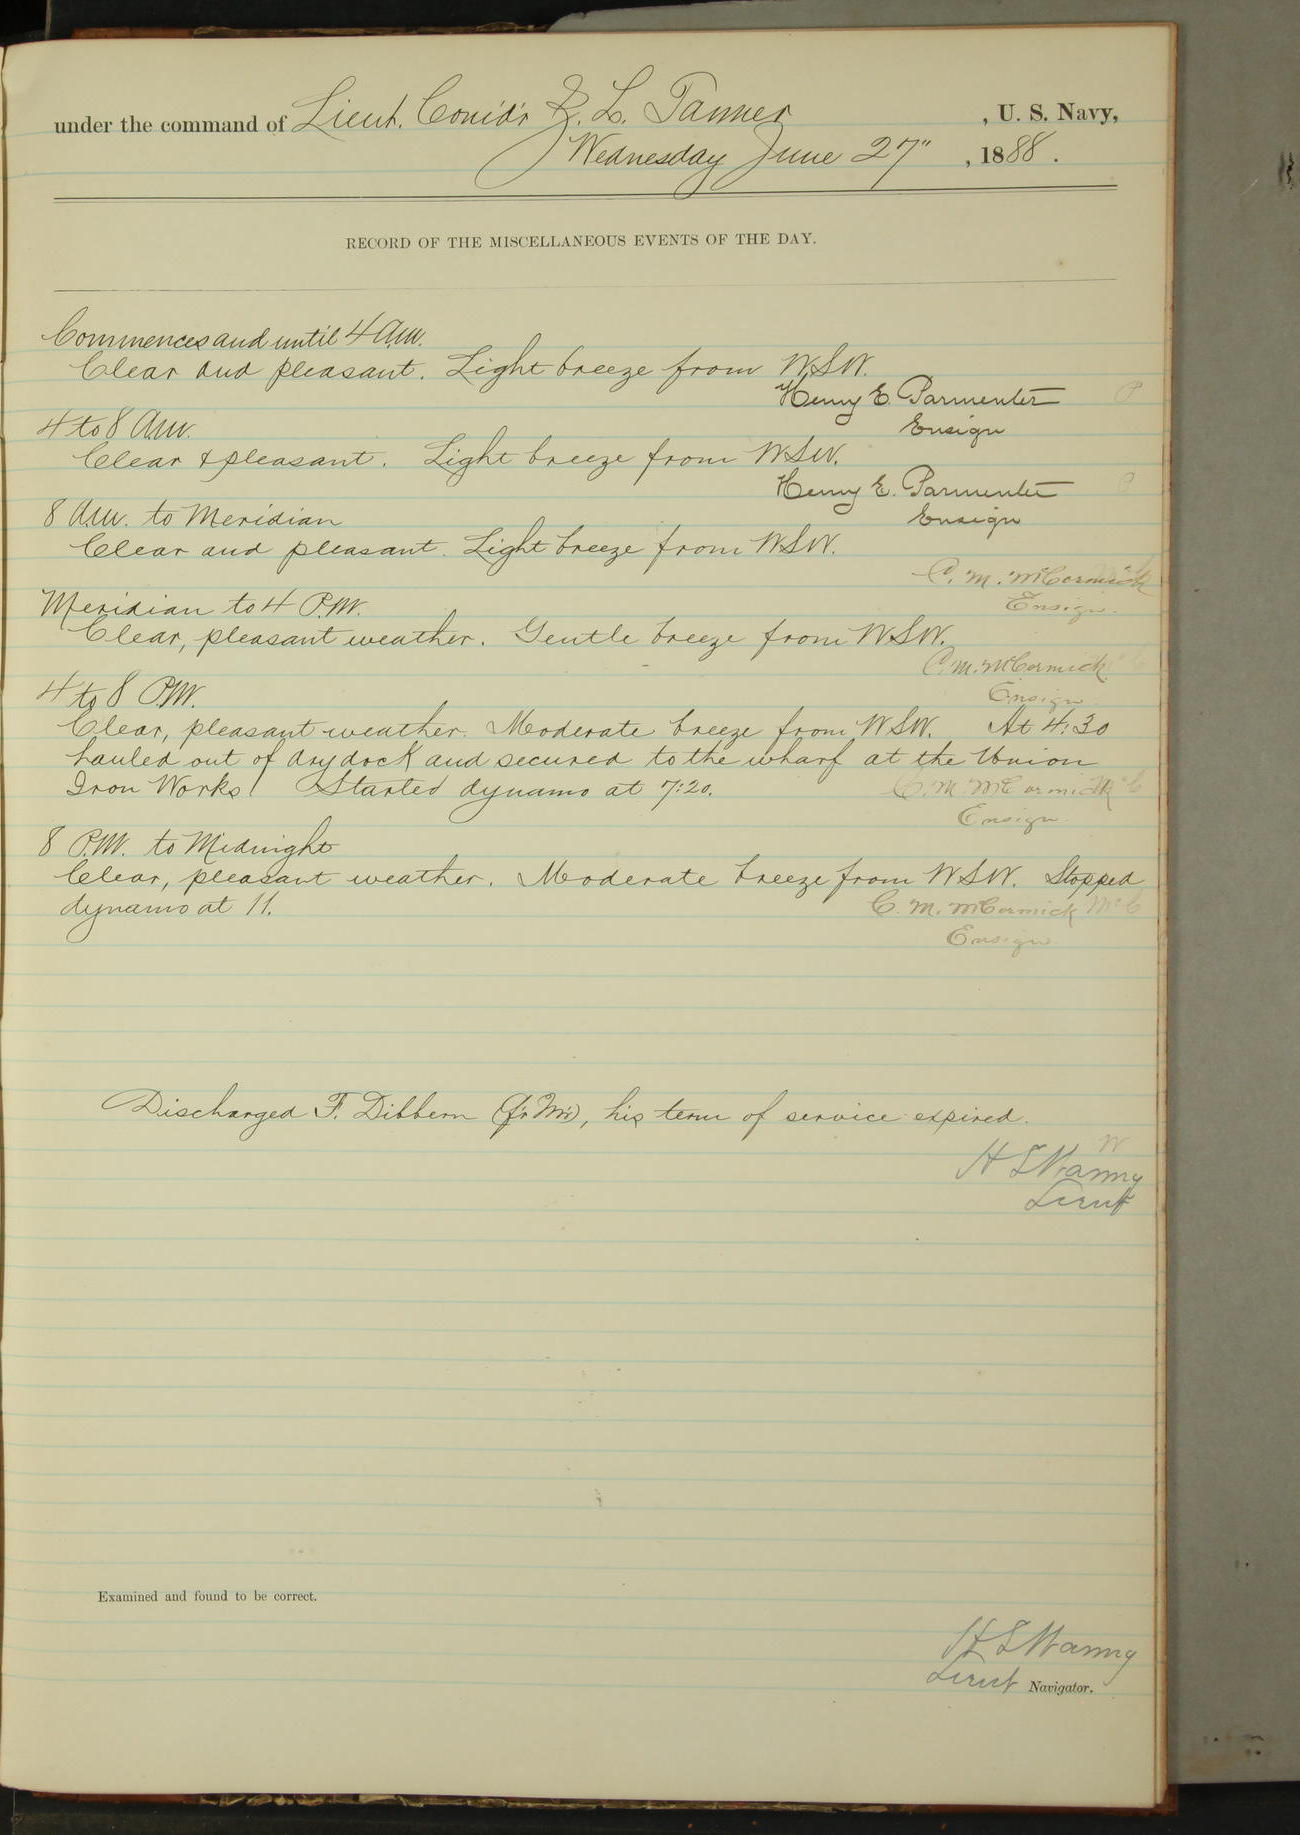 under the command of Lieut. Com'd'r Z. L. Tanner, U. S. Navy,
Wednesday June 27", 1888.
RECORD OF THE MISCELLANEOUS EVENTS OF THE DAY.
Commences and until 4 A.M.
Clear and pleasant. Light breeze from W.S.W.
Henry E. Parmenter P
Ensign
4 to 8 A.M.
Clear & pleasant. Light breeze from W.S.W.
Henry E. Parmenter P
Ensign
8 A.M. to Meridian
Clear and pleasant. Light breeze from W.S.W.
C. M. McCormick
Ensign.
Meridian to 4 P.M.
Clear, pleasant weather. Gentle breeze from W.S.W.
C. M. McCormick
Ensign
4 to 8 P.M.
Clear, pleasant weather. Moderate breeze from W.S.W. At 4:30
hauled out of dry dock and secured to the wharf at the Union
Iron Works. Started dynamo at 7:20. C. M. McCormick McC
Ensign.
8 P.M. to Midnight
Clear, pleasant weather. Moderate breeze from W.S.W. Stopped
dynamo at 11. C. M. McCormick McC
Ensign.
Discharged F. Dibbern, his term of service expired.
W
Lieut
Examined and found to be correct.
Lieut Navigator.